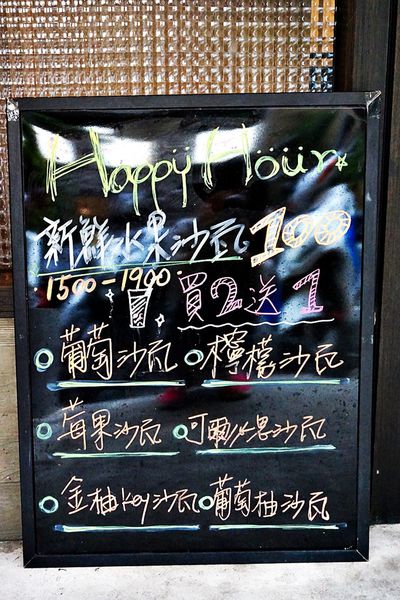 Happy Hour
新鮮水果沙瓦 100
1500-1900
買2送1
葡萄沙瓦 檸檬沙瓦
莓果沙瓦 可爾必思沙瓦
金柚key沙瓦 葡萄柚沙瓦